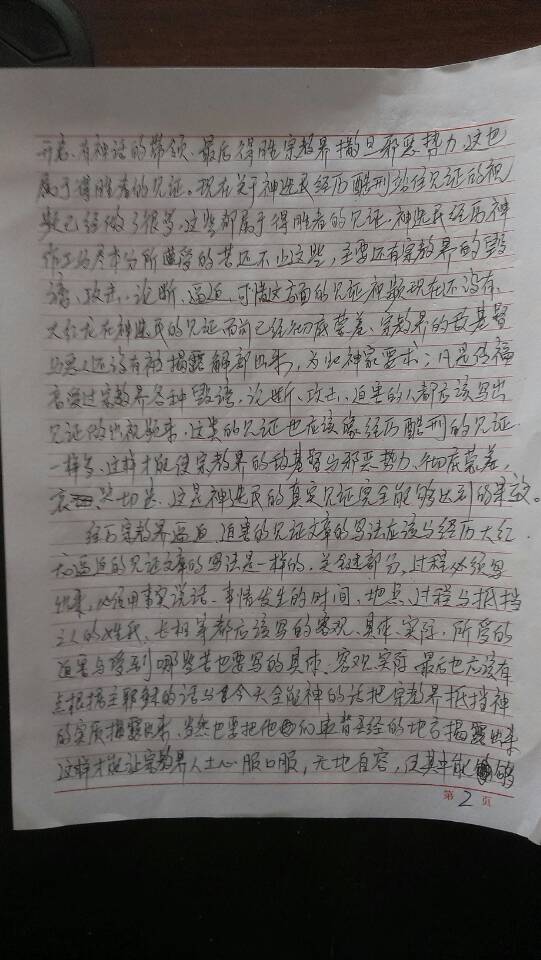 开启、有神话的带领、最后得胜宗教界撒旦邪恶势力,这也
属于得胜者的见证。现在关于神选民经历酷刑站住见证的视
频已经做了很多,这些都属于得胜者的见证。神选民经历神
作工的尽本分所遭受的苦还不止这些,主要还有宗教界的毁
谤、攻击、论断、逼迫,可惜这方面的见证视频现在还没有,
大红龙在神选民的见证面前已经彻底蒙羞、宗教界的敌基督
与恶人还没有被揭露解剖出来,为此神家要求:凡是传福
音受过宗教界各种毁谤、论断、攻击、迫害的人都应该写出
见证做出视频来,这类的见证也应该像经历酷刑的见证
一样多、这样才能使宗教界的敌基督与邪恶势力、彻底蒙羞,
哀哭切齿、这是神选民的真实见证完全能够达到的果效。
经历宗教界逼迫、迫害的见证文章的写法应该与经历大红
龙逼迫的见证文章的写法是一样的,关键部分,过程必须写
出来,必须用事实说话、事情发生的时间、地点、过程与抵挡
之人的姓氏、长相等都应该写的客观、具体、实际,所受的
迫害与受到哪些苦也要写的具体、客观、实际 最后也应该有
点根据主耶稣的话与今天全能神的话把宗教界抵挡神
的实质揭露出来、当然也要把他们违背圣经的地方揭露出来
这样才能让宗教界人士心服口服,无地自容,使其中能够
第2页